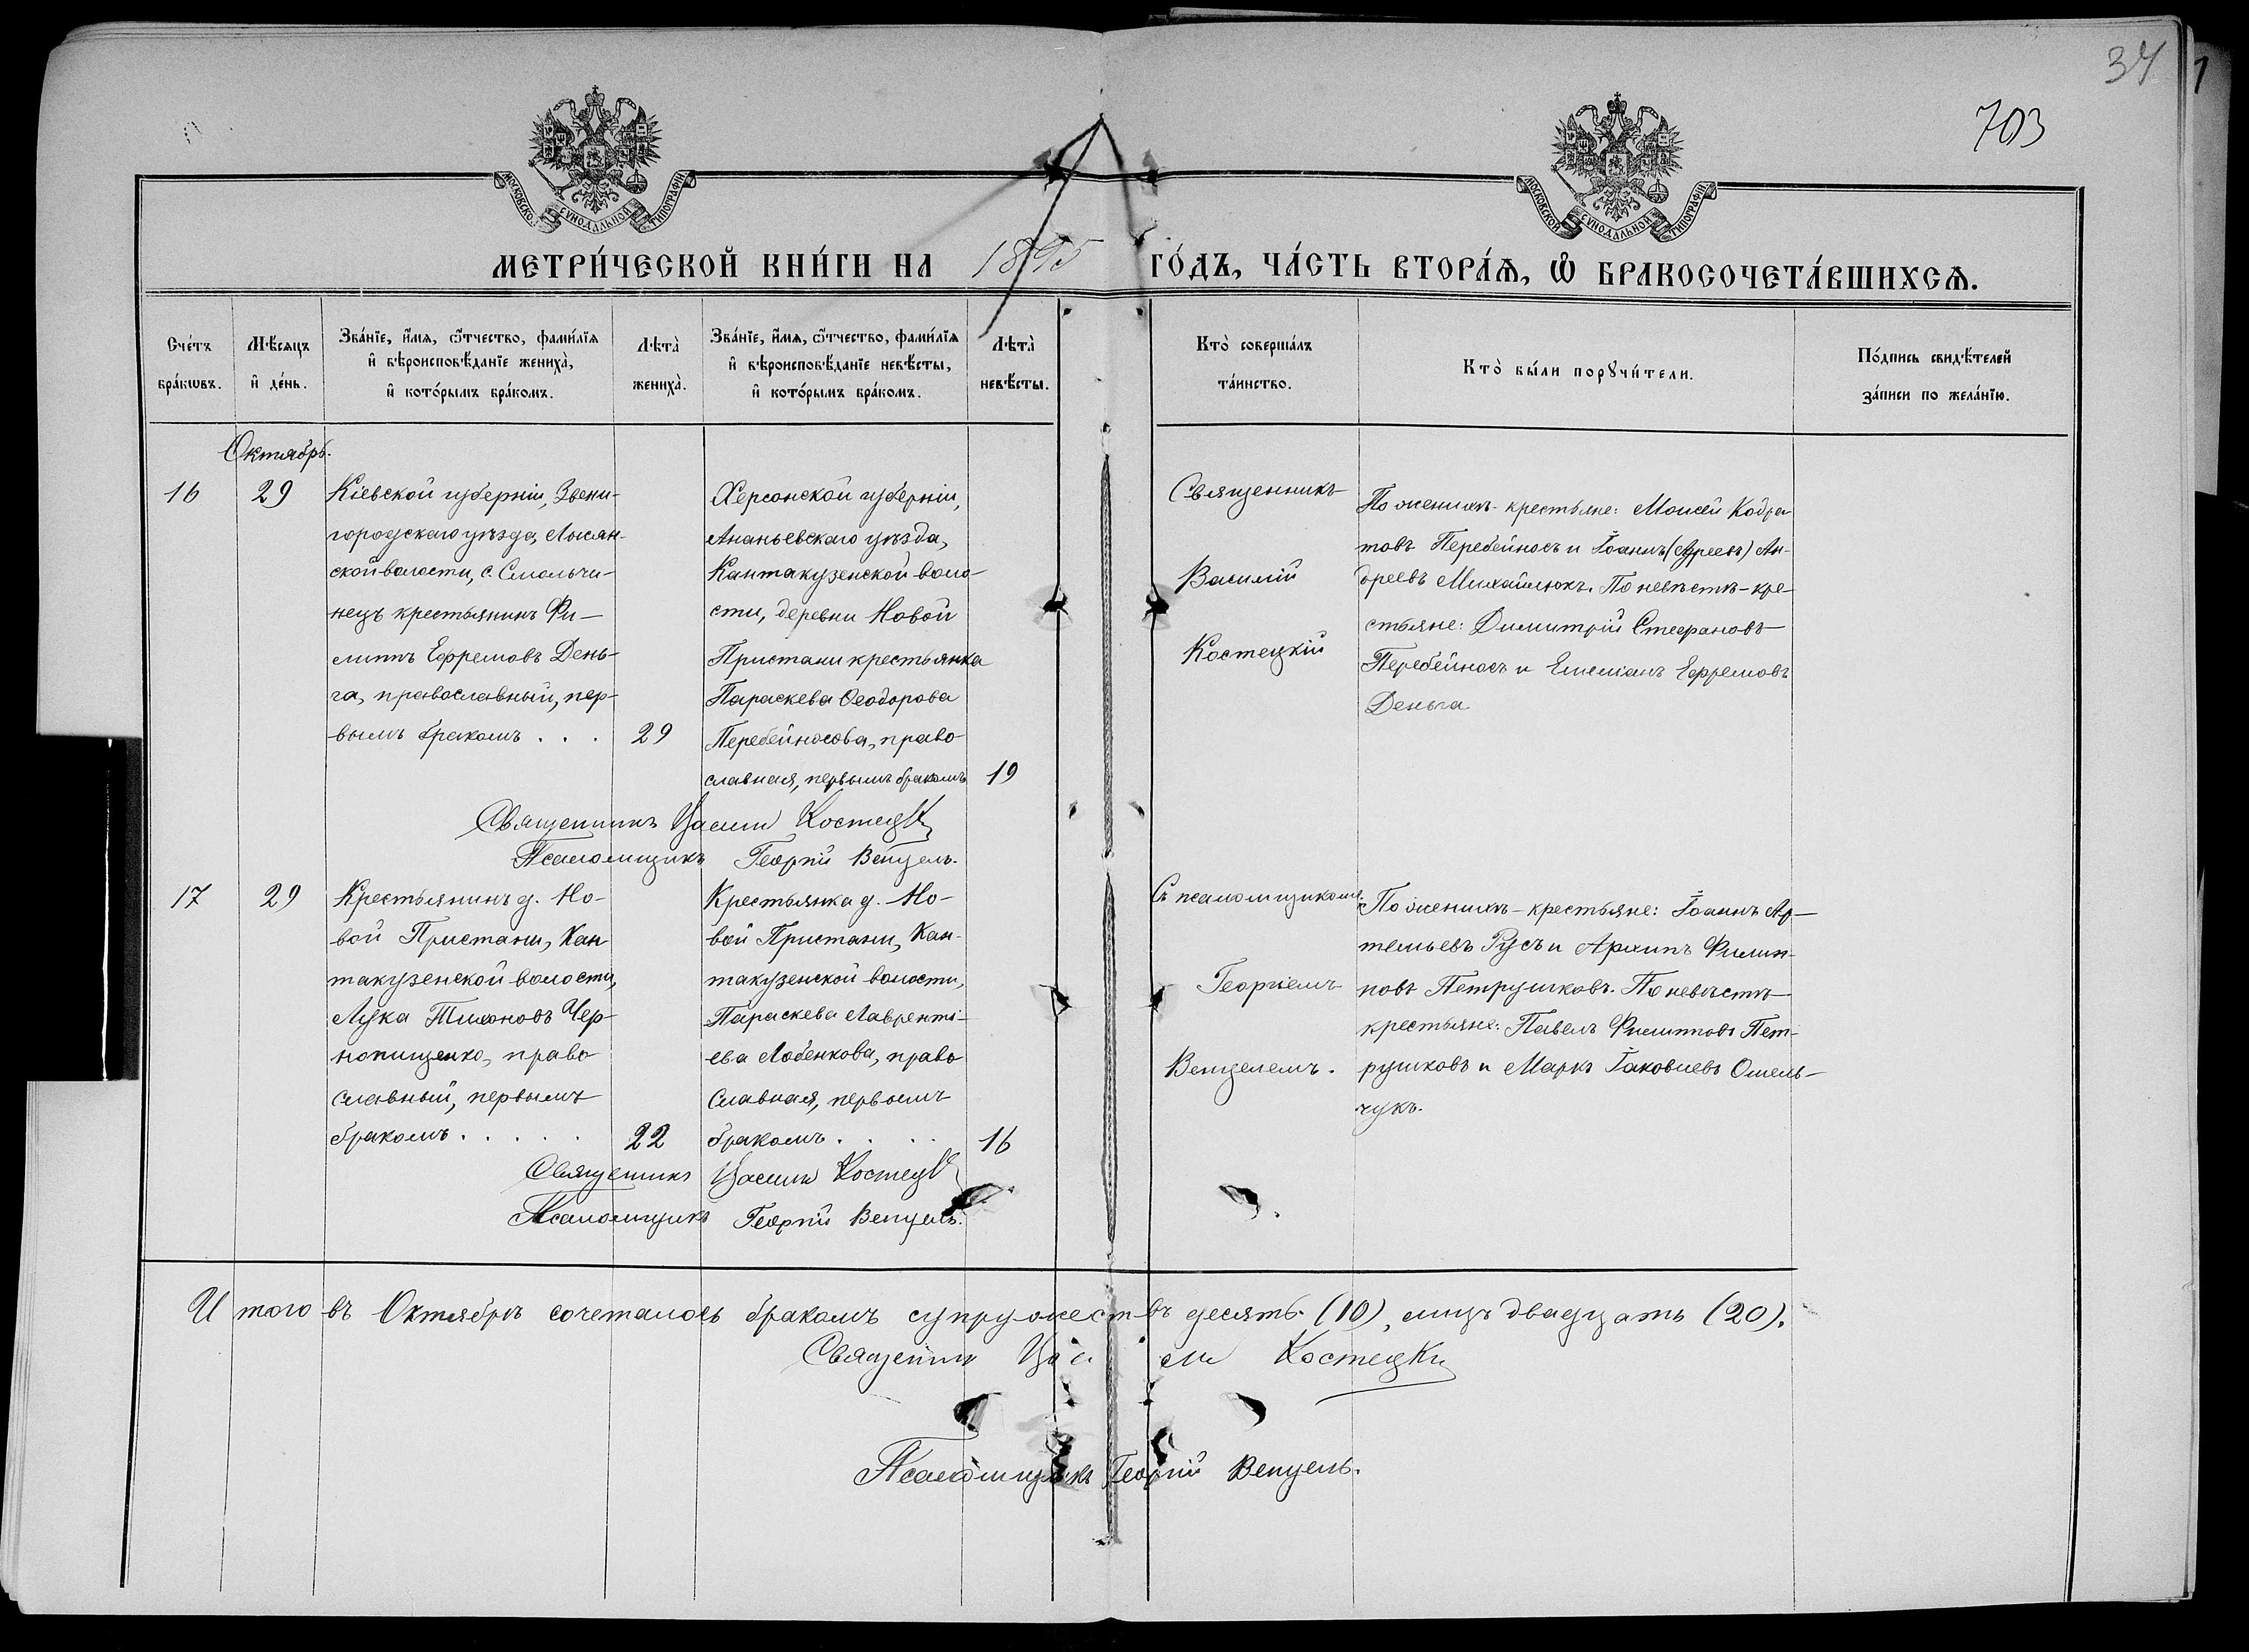 34
703
МОСКОВСКОЙ СѴНОДАЛЬНОЙ ТИПОГРАФІИ
МОСКОВСКОЙ СѴНОДАЛЬНОЙ ТИПОГРАФІИ
МЕТРИ́ЧЕСКОЙ КНИ́ГИ НА 1895 ГО́ДЪ, ЧА́СТЬ ВТОРА́Ѧ, Ѽ БРАКОСОЧЕТА́ВШИХСѦ.
Сче́тъ
бра́кѡвъ.
Мѣ́сяцъ
и҆ де́нь.
Зва́нїе, и҆́мѧ, ѻ҆́тчество, фами́лїѧ
и҆ вѣроисповѣ́данїе жениха̀,
и҆ кото́рымъ бра́комъ.
Лѣта̀
жениха̀.
Зва́нїе, и҆́мѧ, ѻ҆́тчество, фами́лїѧ
и҆ вѣроисповѣ́данїе невѣ́сты,
и҆ кото́рымъ бра́комъ.
Лѣта̀
невѣ́сты.
Кто̀ соверша́лъ
та́инство.
Кто̀ бы́ли порꙋчи́тели.
По́дпись свидѣ́телей
за́писи по жела́нїю.
Октябрь.
16
29
Кіевской губерніи, Звени-
городскаго уѣзда, Лысян-
ской волости, с. Смольчи-
нецъ крестьянинъ Фи-
липпъ Ефремовъ День-
га, православный, пер-
вымъ бракомъ . . .
29
Херсонской губерніи,
Ананьевскаго уѣзда,
Кантакузенской воло-
сти, деревни Новой
Пристани крестьянка
Параскева Ѳеодорова
Перебейносова, право-
славная, первымъ бракомъ
19
Священникъ
Василій
Костецкій
По женихѣ - крестьяне: Моисей Кодра
товъ Перебейносъ и Іоаннъ (Адреевъ) Ан-
дреевъ Михайлюкъ. По невѣстѣ - кре-
стьяне: Димитрій Стефановъ
Перебейносъ и Емеліанъ Ефремовъ
Деньга
Священникъ Василій Костецкій
Псаломщикъ Георгій Венцель.
17
29
Крестьянинъ д. Но-
вой Пристани, Кан
такузенской волости,
Лука Тихоновъ Чер-
нопищенко, право
славный, первымъ
бракомъ . . . . .
22
Крестьянка д. Но-
вой Пристани, Кан-
такузенской волости,
Параскева Лаврентi-
ева Лобенкова, право
славная, первымъ
бракомъ . . . .
16
Съ псаломщикомъ
Георгіемъ
Венцелемъ.
По женихѣ - крестьяне: Іоаннъ Ар-
темьевъ Русъ и Архипъ Филип-
повъ Петрушковъ. По невѣстѣ
крестьяне: Павелъ Филипповъ Пет-
рушковъ и Маркъ Іаковлевъ Омель-
чукъ.
Священникъ Василій Костецкій
Псаломщикъ Георгій Венцель.
Итого въ Октябрѣ сочеталось бракомъ супружествъ десять (10), лицъ двадцать (20).
Священникъ Василій Костецкій
Псаломщикъ Георгій Венцель.